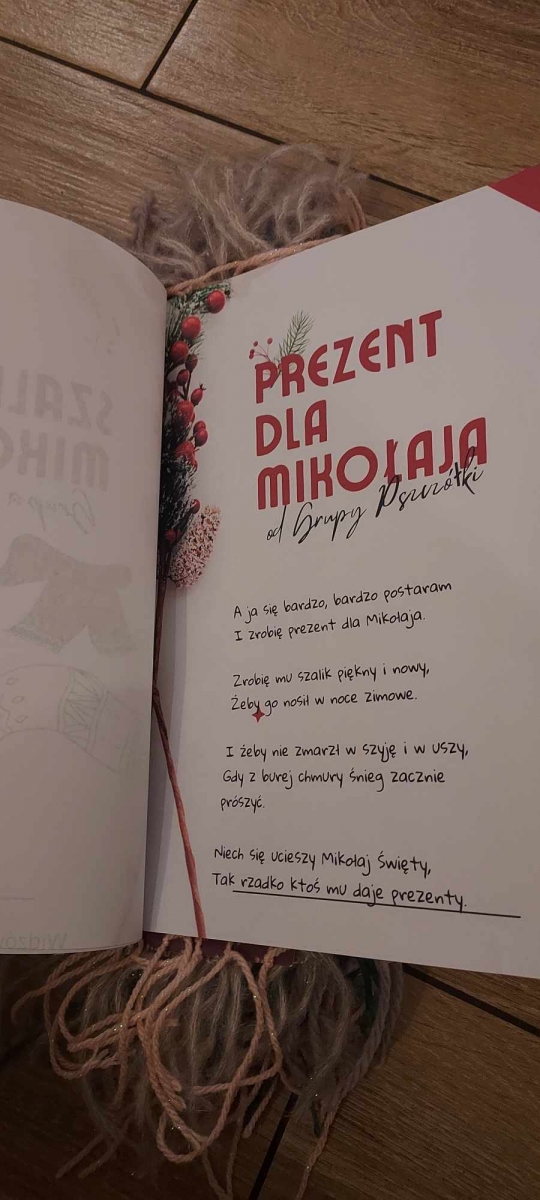 PREZENT
DLA
MIKOŁAJA
od Grupy Pszczółki
A ja się bardzo, bardzo postaram
I zrobię prezent dla Mikołaja.
Zrobię mu szalik piękny i nowy,
Żeby go nosił w noce zimowe.
I żeby nie zmarzł w szyję i w uszy,
Gdy z burej chmury śnieg zacznie
prószyć.
Niech się ucieszy Mikołaj Święty,
Tak rzadko ktoś mu daje prezenty.